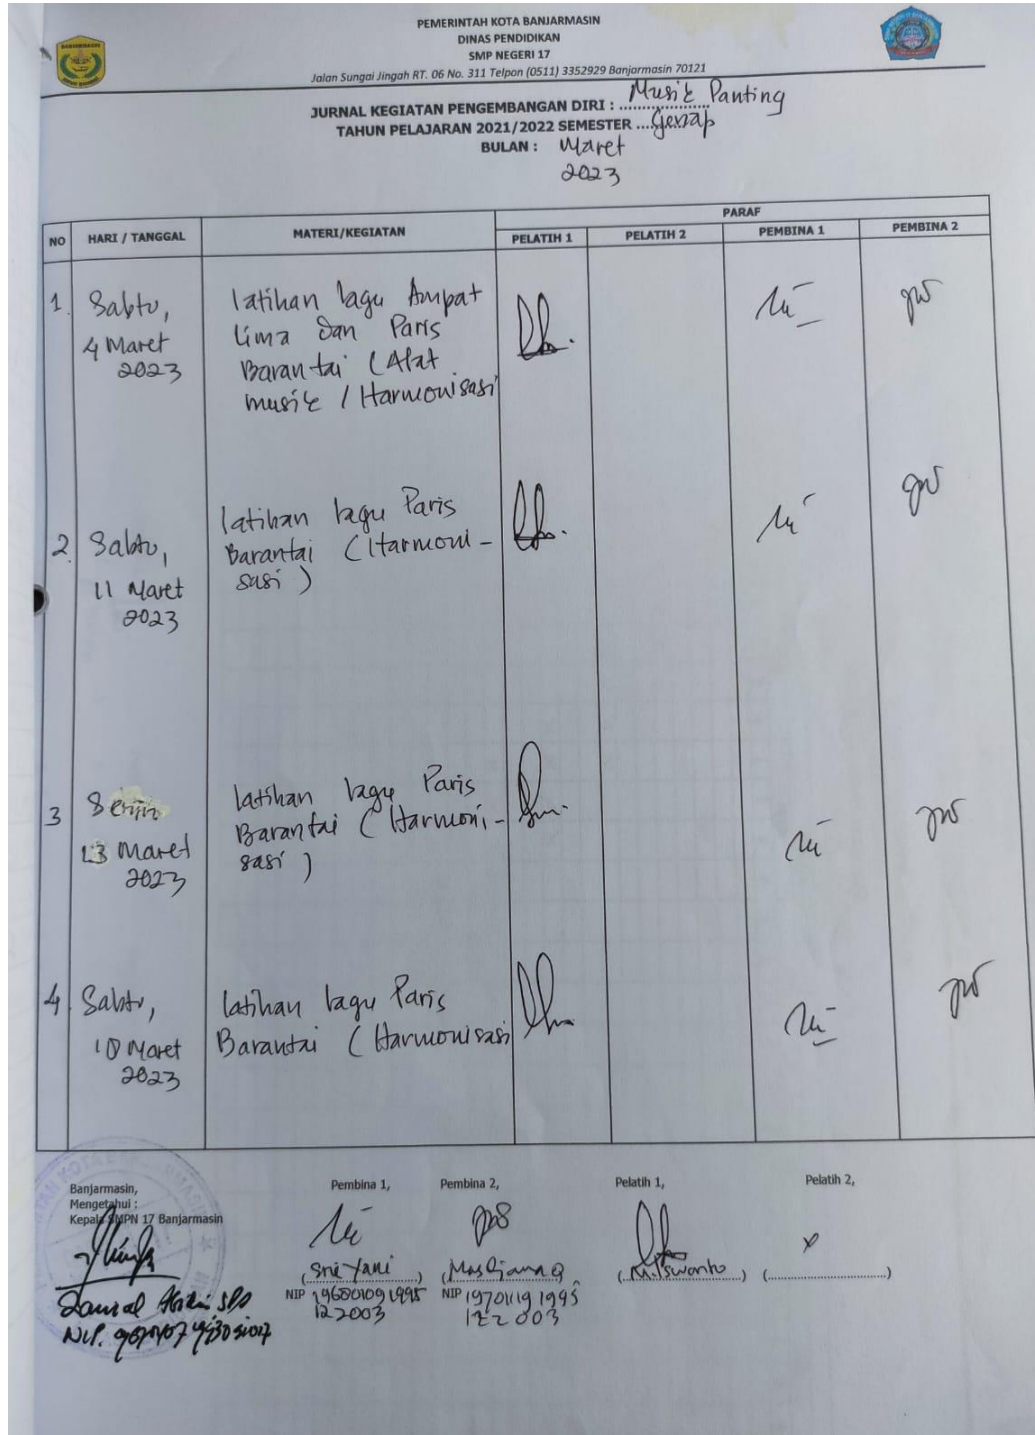 PEMERINTAH KOTA BANJARMASIN
DINAS PENDIDIKAN
SMP NEGERI 17
Jalan Sungai Jingah RT. 06 No. 311 Telpon (0511) 3352929 Banjarmasin 70121
JURNAL KEGIATAN PENGEMBANGAN DIRI : Musik Panting
TAHUN PELAJARAN 2021/2022 SEMESTER Genap
BULAN : Maret
2023
NO HARI / TANGGAL MATERI/KEGIATAN PARAF
PELATIH 1 PELATIH 2 PEMBINA 1 PEMBINA 2
1. Sabtu,
4 Maret
2023
latihan lagu Ampat
lima dan Paris
Barantai (Alat
musik / Harmonisasi
2. Sabtu,
11 Maret
2023
latihan lagu Paris
Barantai (Harmoni-
sasi)
3 Senin
13 Maret
2023
latihan lagu Paris
Barantai (Harmoni-
sasi)
4. Sabtu,
18 Maret
2023
latihan lagu Paris
Barantai (Harmonisasi
Banjarmasin,
Mengetahui :
Kepala SMPN 17 Banjarmasin
NIP.
Pembina 1,
(Sri Yani)
NIP 19680109 1995
12 2003
Pembina 2,
(Masdiana)
NIP 19701119 1995
12 2003
Pelatih 1,
(M. Iswanto)
Pelatih 2,
x
(....................)